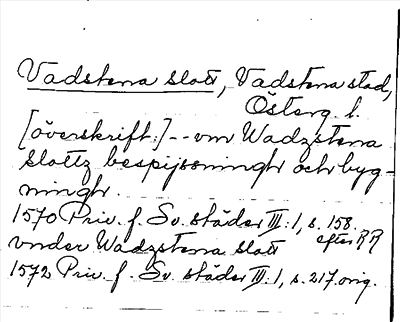 Vadstena slott, Vadstena stad,
Österg. l.
[överskrift:] -- vm Wadzstena
slottz bespijsningh och byg-
ningh.
1570 Priv. f. Sv. städer III:1, s. 158.
efter RR
vnder Wadzstena slott
1572 Priv. f. Sv. städer III:1, s. 217. orig.